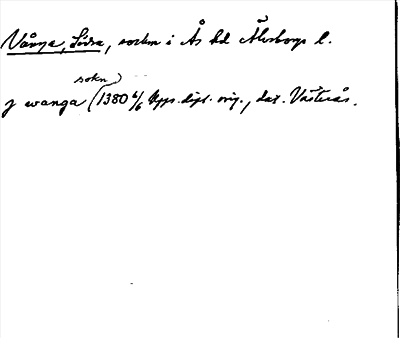 Vånga, Södra, socken i Ås hd Älvsborgs l.
sokn
j wanga (1380 6/6 Upps. dipl. orig., dat. Västerås.